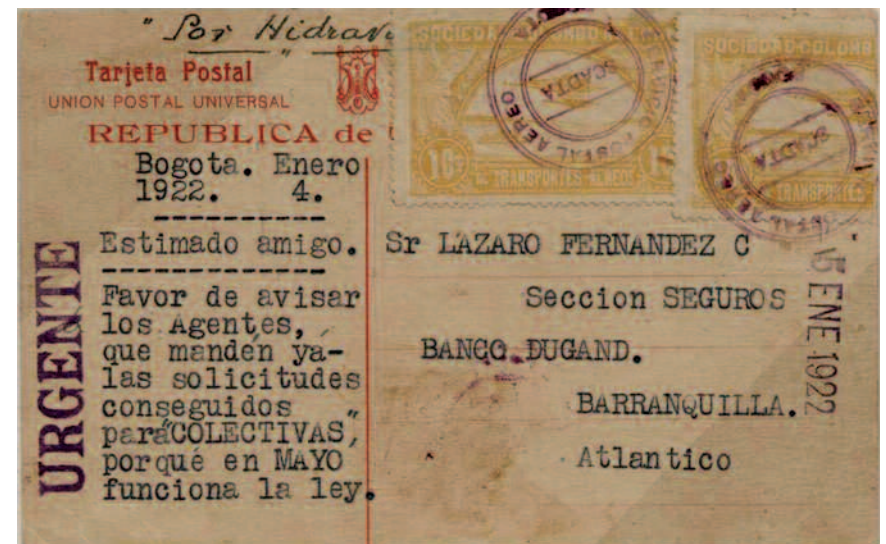 "Por Hidrav
Tarjeta Postal
UNION POSTAL UNIVERSAL
REPUBLICA de
Bogota. Enero
1922. 4.
Estimado amigo.
Favor de avisar
los Agentes,
que mandén ya-
las solicitudes
conseguidos
para"COLECTIVAS",
porqué en MAYO
funciona la ley.
URGENTE
SOCIEDAD COLOMBO
SERVICIO POSTAL AEREO
SCADTA
DE TRANSPORTES AEREOS
SOCIEDAD COLOMB
POSTAL AEREO
SCADTA
TRANSPORTES
Sr LAZARO FERNANDEZ C
Seccion SEGUROS
BANCO DUGAND.
BARRANQUILLA.
Atlantico
5 ENE 1922